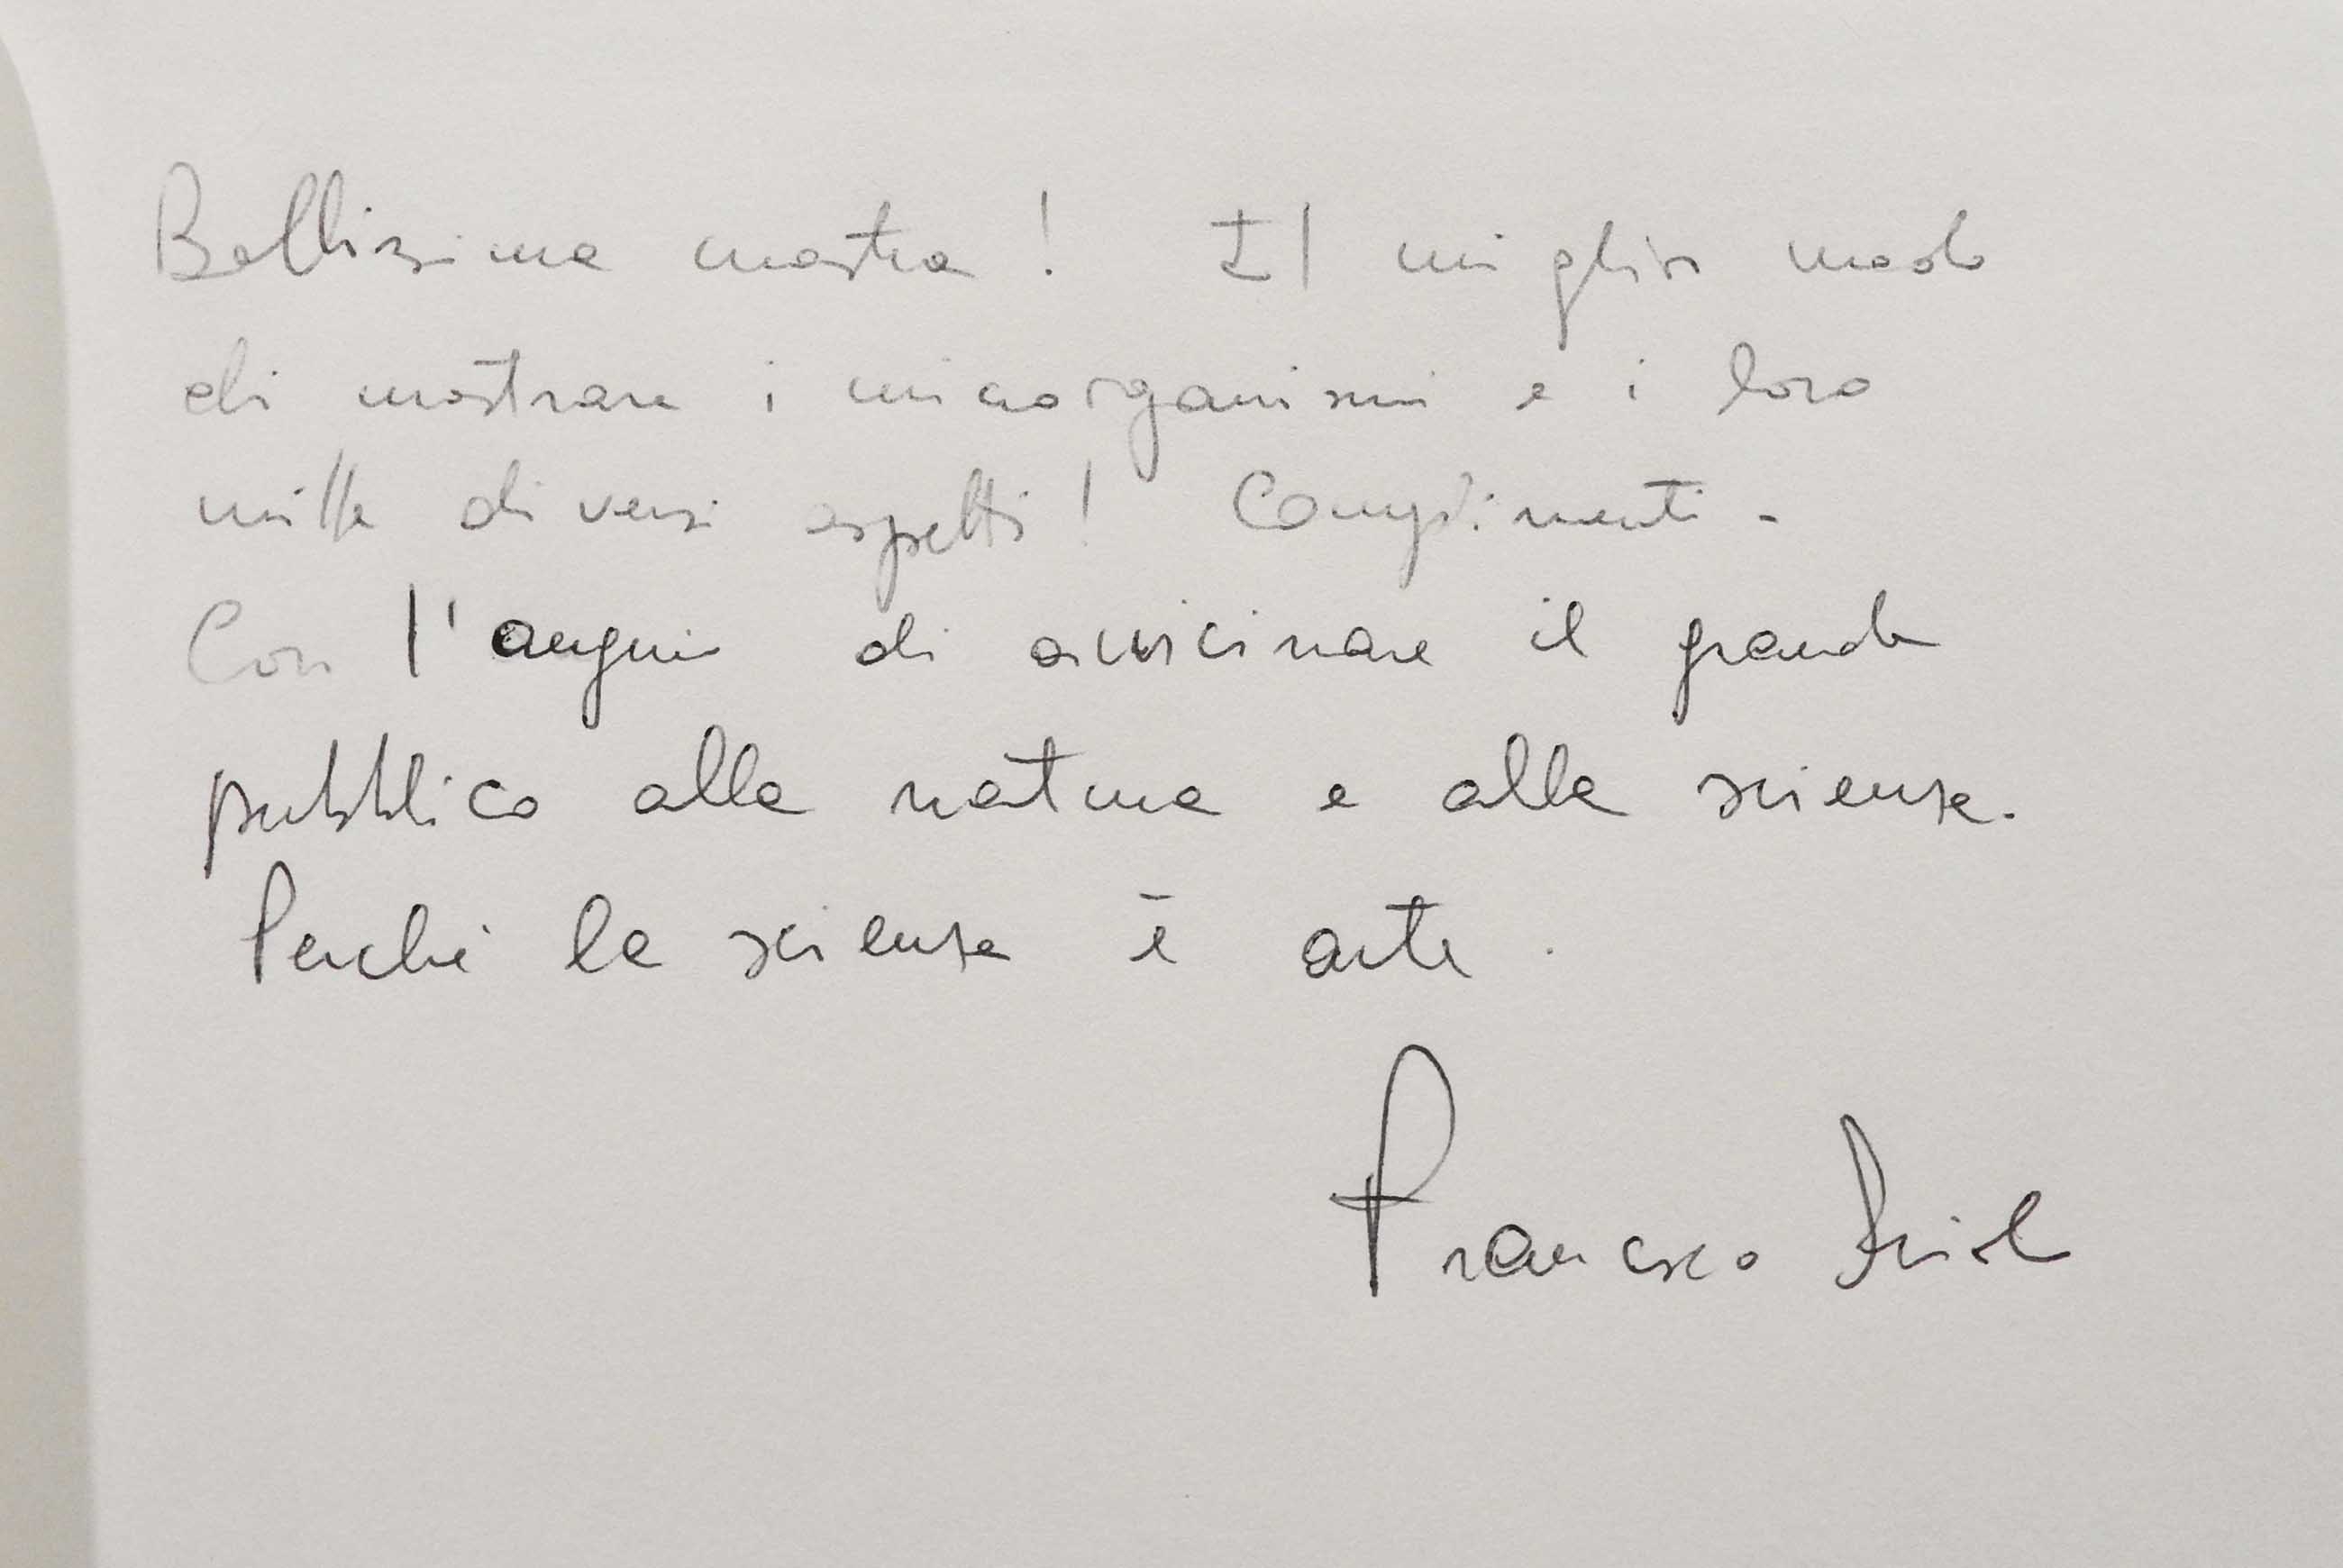 Bellissima mostra! Il miglior modo
di mostrare i microrganismi e i loro
mille diversi aspetti! Complimenti -
Con l'augurio di avvicinare il grande
pubblico alla natura e alla scienza.
Perché la scienza è arte.
Francesco